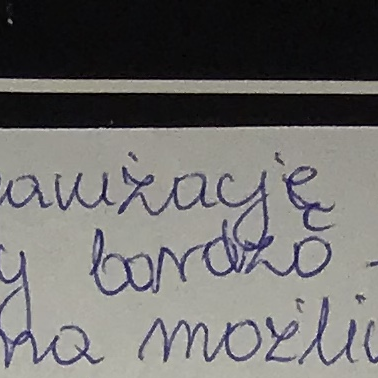 anizację
y bardzo -
na możliw